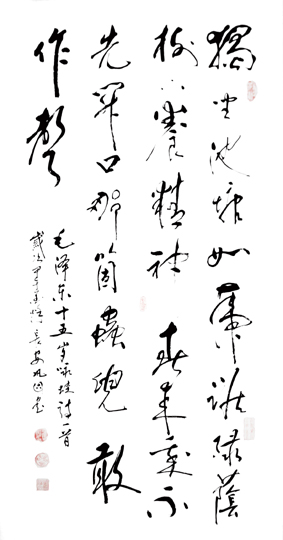 獨坐池塘如虎踞綠蔭
樹下養精神春來我不
先開口那箇蟲兒敢
作聲
毛澤东十五岁咏蛙詩一首
歲次甲午